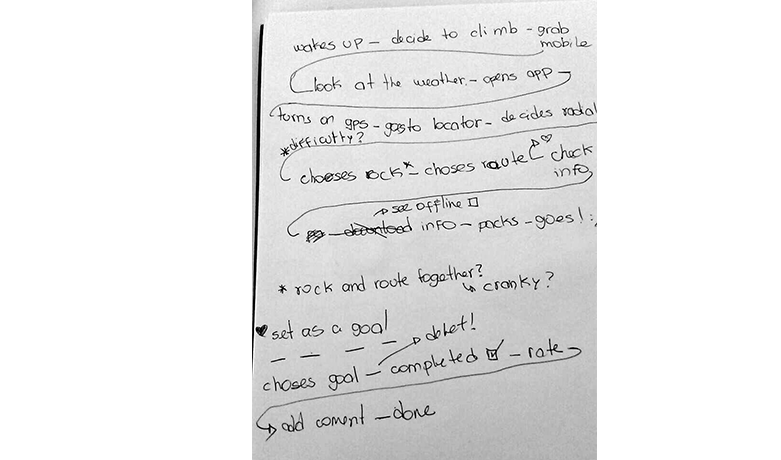 wakes up – decide to climb – grab
mobile
look at the weather. – opens app –
turns on gps – goes to locator – decides radial
*difficulty?
chooses rock* – choses route ♡ check
info
→ see offline □
download info – packs – goes! :
* rock and route together?
↳ cranky?
♥ set as a goal
choses goal – completed ☑ – rate
→ delet!
→ add coment – done